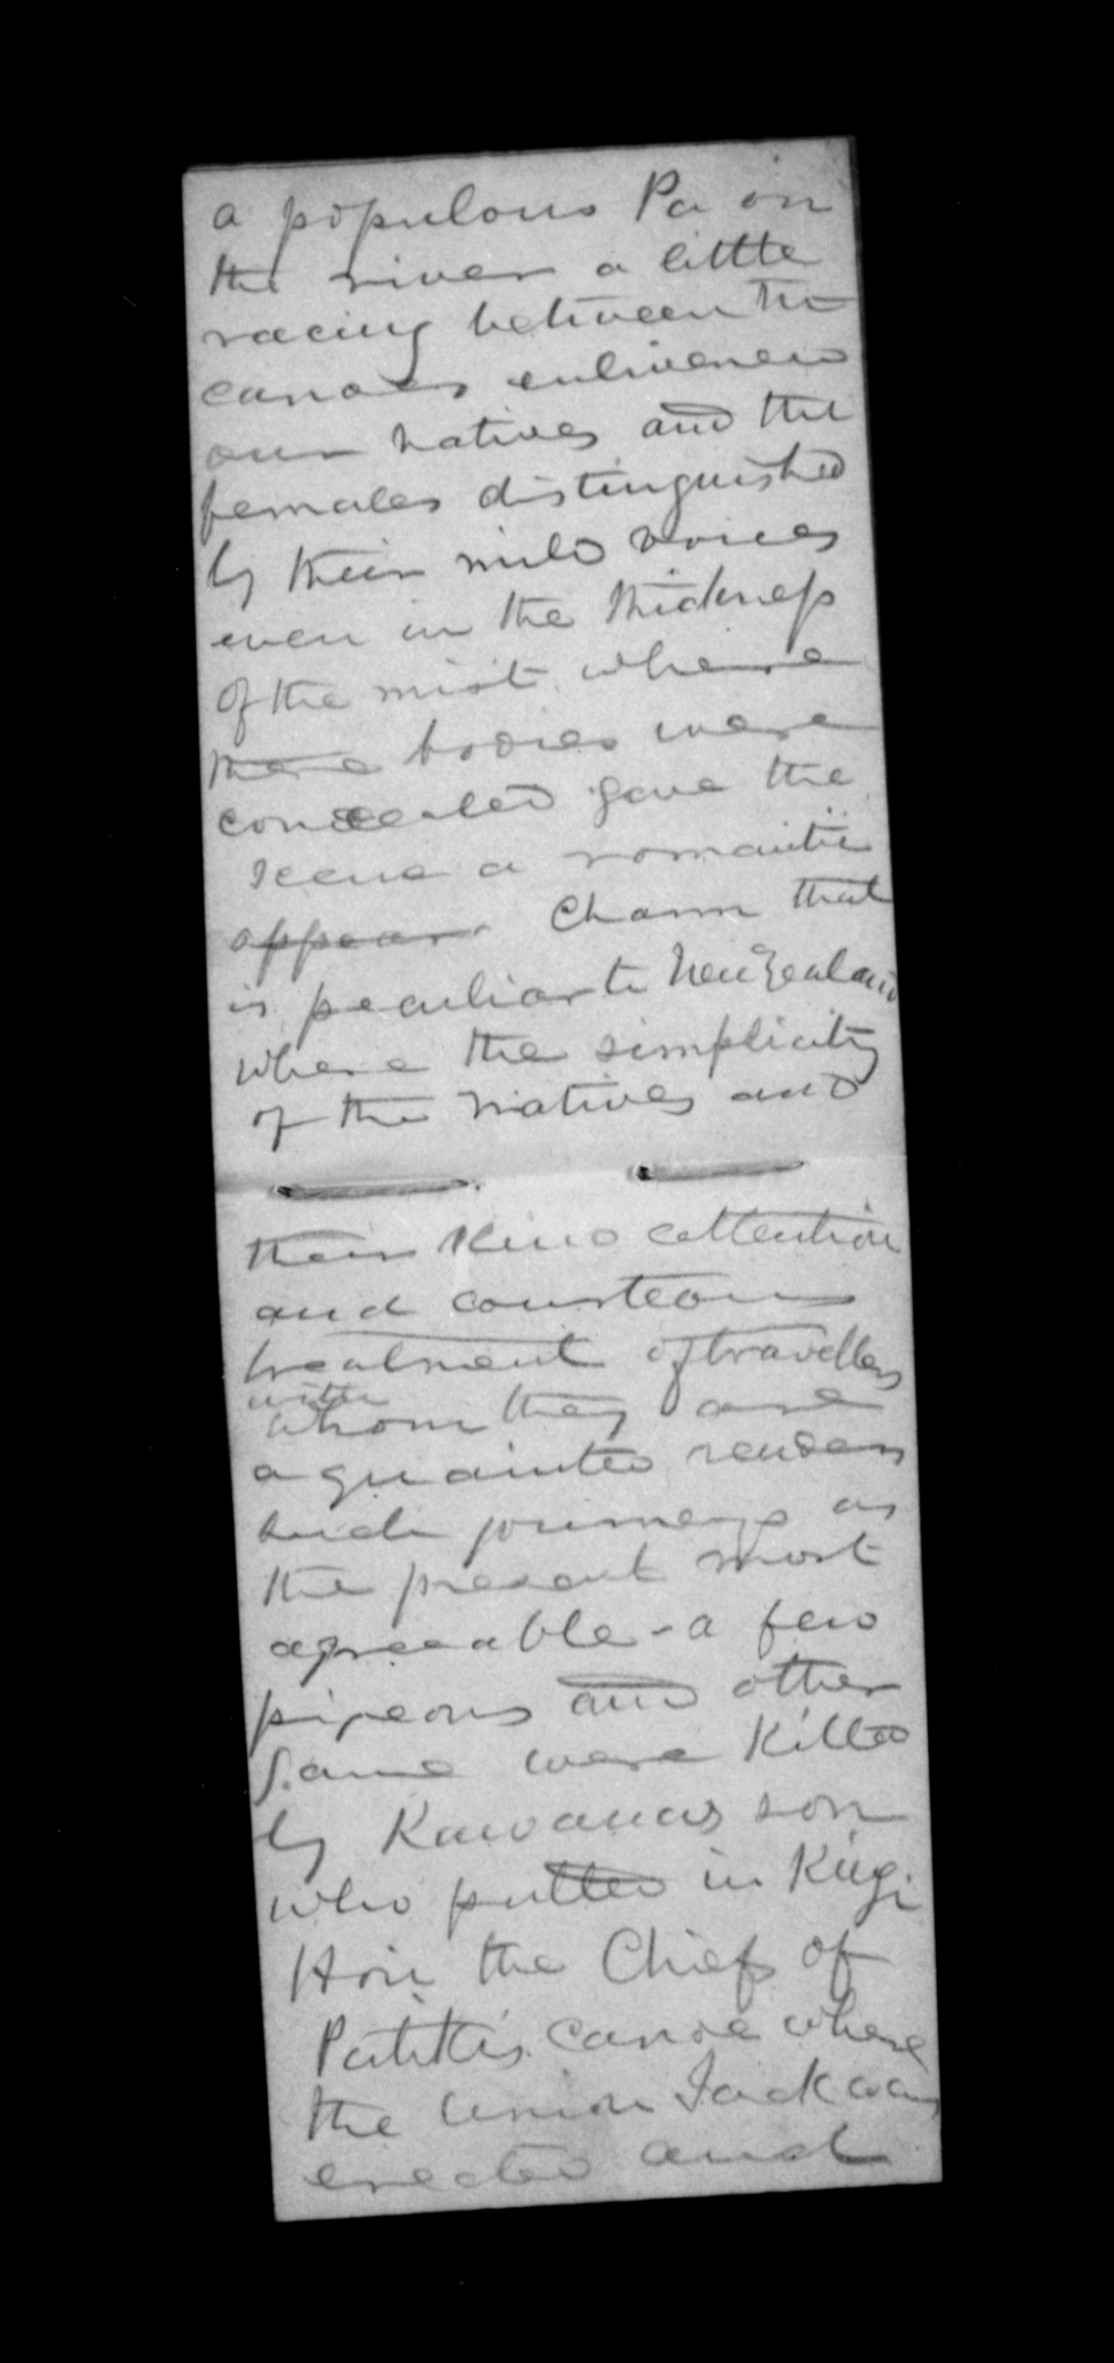 a populous Pa on
the river a little
racing between the
canoes enlivened
our natives and the
females distinguished
by their mild voices
even in the thickness
Of the mist where
there bodies were
concealed gave the
scene a romantic
appear. Charm that
is peculiar to New Zealand
where the simplicity
of the Natives and
their kind attention
and courteous
treatment of travellers
with
whom they are
aquainted renders
such journeys as
the present most
agreeable - a few
pigeons and other
game were killed
by Kawanas son
who pulled in Kingi
Hori the Chief of
Patiki's canoe where
the Union Jack was
erected and